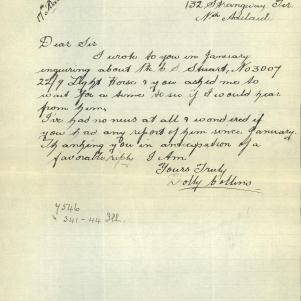 132 Strangway Ter
Nth Adelaide
Dear Sir
I wrote to you in January
inquiring about Mr C S Stuart, No 3007
22/9 Light Horse & you asked me to
wait for a time to see if I would hear
from him.
I've had no news at all & wondered if
you had any report of him since January.
Thanking you in anticipation of a
favorable reply I Am
Yours Truly
Dolly Collins
341-44 Ill.